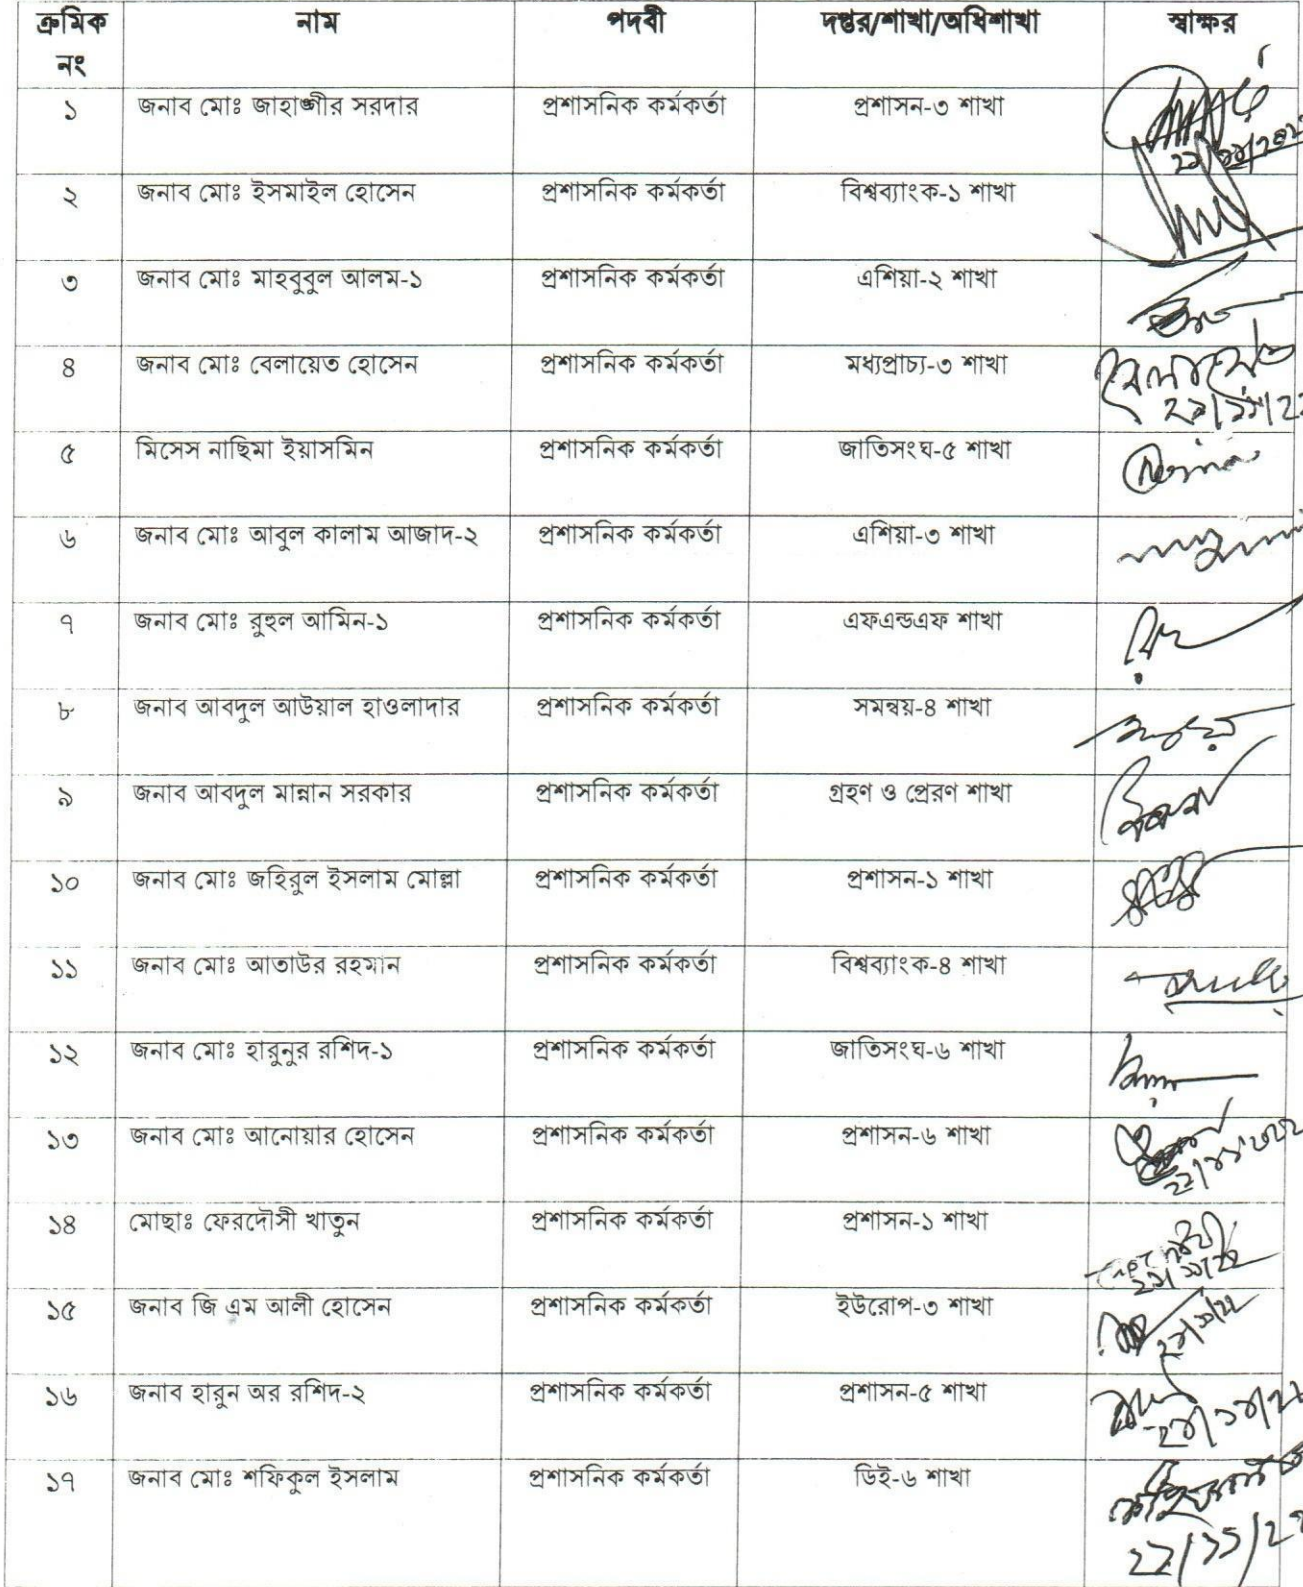 ক্রমিক নং নাম পদবী দপ্তর/শাখা/অধিশাখা স্বাক্ষর
১ জনাব মোঃ জাহাঙ্গীর সরদার প্রশাসনিক কর্মকর্তা প্রশাসন-৩ শাখা
২ জনাব মোঃ ইসমাইল হোসেন প্রশাসনিক কর্মকর্তা বিশ্বব্যাংক-১ শাখা
৩ জনাব মোঃ মাহবুবুল আলম-১ প্রশাসনিক কর্মকর্তা এশিয়া-২ শাখা
৪ জনাব মোঃ বেলায়েত হোসেন প্রশাসনিক কর্মকর্তা মধ্যপ্রাচ্য-৩ শাখা বেলায়েত
৫ মিসেস নাছিমা ইয়াসমিন প্রশাসনিক কর্মকর্তা জাতিসংঘ-৫ শাখা
৬ জনাব মোঃ আবুল কালাম আজাদ-২ প্রশাসনিক কর্মকর্তা এশিয়া-৩ শাখা
৭ জনাব মোঃ রুহুল আমিন-১ প্রশাসনিক কর্মকর্তা এফএন্ডএফ শাখা
৮ জনাব আবদুল আউয়াল হাওলাদার প্রশাসনিক কর্মকর্তা সমন্বয়-৪ শাখা
৯ জনাব আবদুল মান্নান সরকার প্রশাসনিক কর্মকর্তা গ্রহণ ও প্রেরণ শাখা
১০ জনাব মোঃ জহিরুল ইসলাম মোল্লা প্রশাসনিক কর্মকর্তা প্রশাসন-১ শাখা
১১ জনাব মোঃ আতাউর রহমান প্রশাসনিক কর্মকর্তা বিশ্বব্যাংক-৪ শাখা
১২ জনাব মোঃ হারুনুর রশিদ-১ প্রশাসনিক কর্মকর্তা জাতিসংঘ-৬ শাখা
১৩ জনাব মোঃ আনোয়ার হোসেন প্রশাসনিক কর্মকর্তা প্রশাসন-৬ শাখা
১৪ মোছাঃ ফেরদৌসী খাতুন প্রশাসনিক কর্মকর্তা প্রশাসন-১ শাখা
১৫ জনাব জি এম আলী হোসেন প্রশাসনিক কর্মকর্তা ইউরোপ-৩ শাখা
১৬ জনাব হারুন অর রশিদ-২ প্রশাসনিক কর্মকর্তা প্রশাসন-৫ শাখা
১৭ জনাব মোঃ শফিকুল ইসলাম প্রশাসনিক কর্মকর্তা ডিই-৬ শাখা